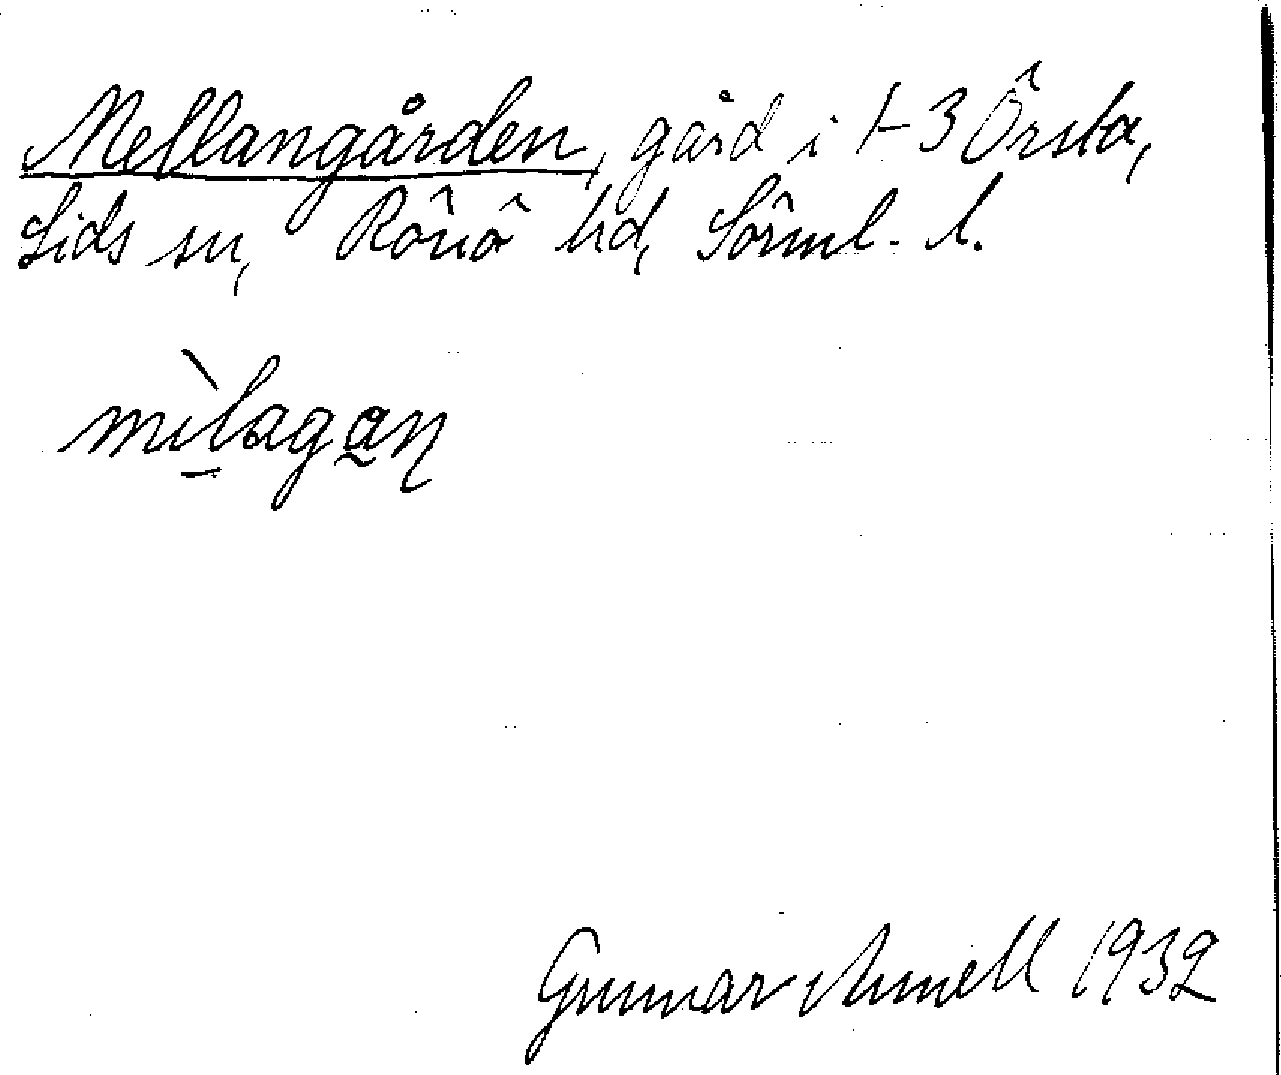 Mellangården, gård i 1-3 Örsta,
Lids sn, Rönö hd, Sörml. l.
mìlagan
Gunnar Amell 1932